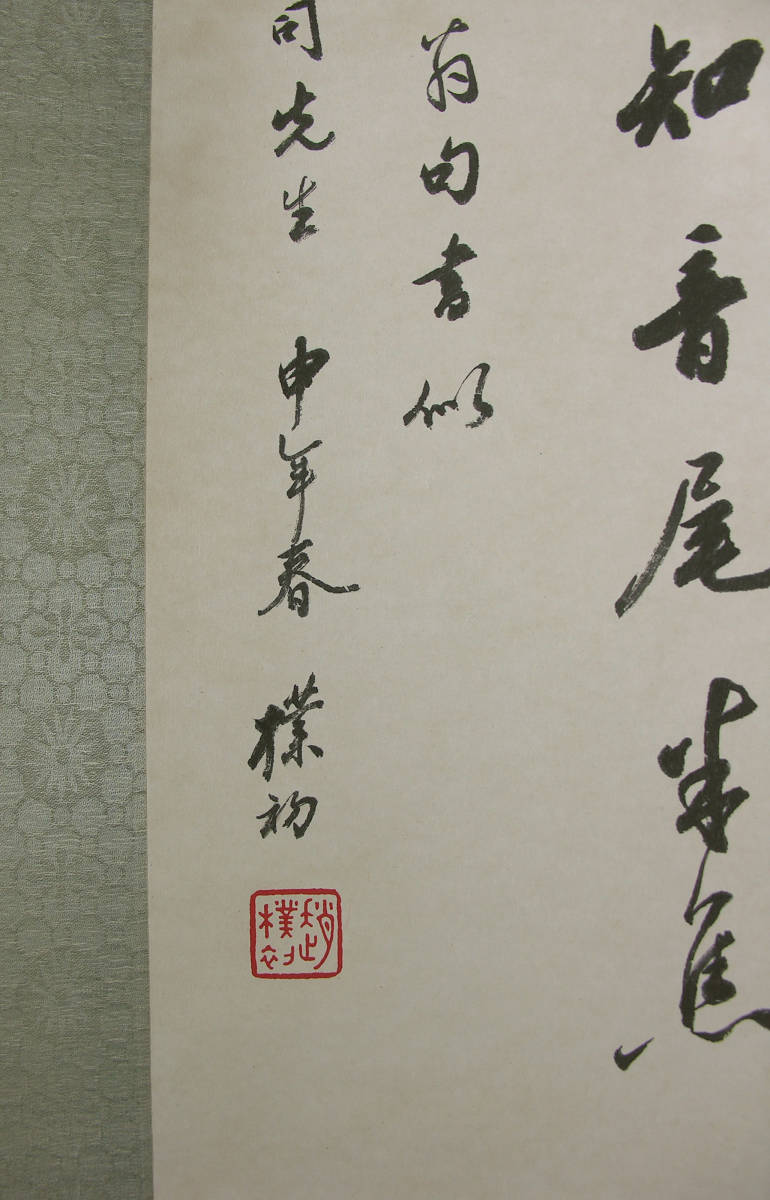 知音尾半焦
翁句書似
司先生 申年春 樸初
趙樸初